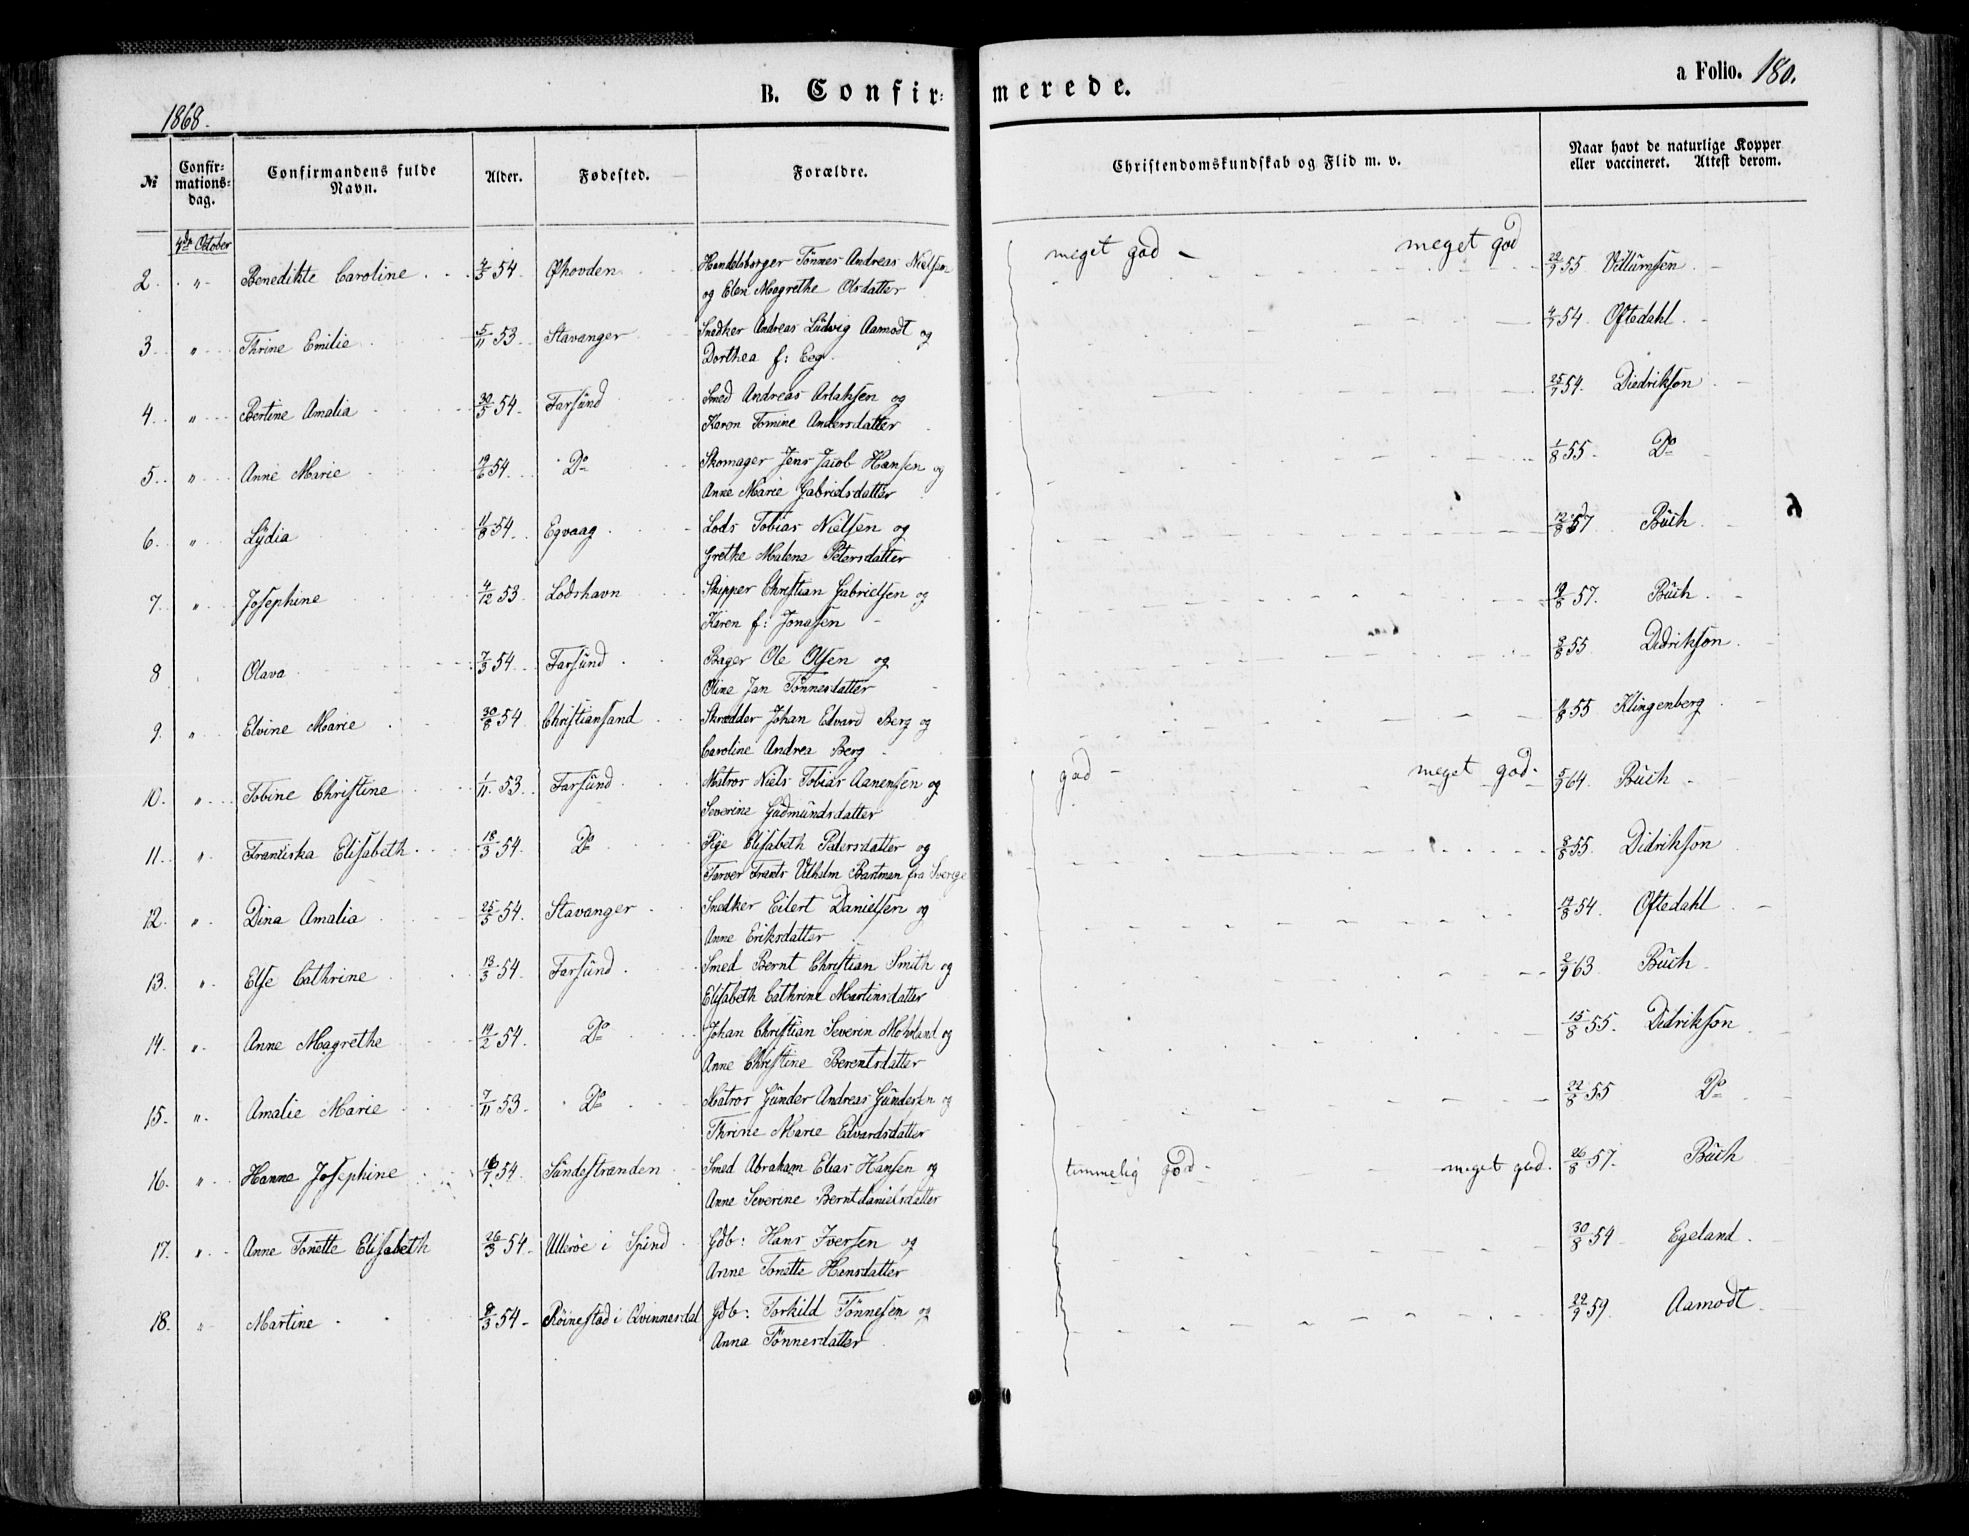 B. Confir-
merede.
a Folio. 180.
1868.
No
Confir-
mations-
dag.
Confirmandens fulde
Navn.
Alder.
Fødested.
Forældre.
Christendomskundskab og Flid m. v.
Naar havt de naturlige Kopper
eller vaccineret. Attest derom.
4de October
2. " Benedikte Caroline 4/5 54 Øhovden Handelsborger Tønnes Andreas Nielsen meget god - meget god 22/9 55 Villumsen
og Elen Magrethe Olsdatter
3. " Thrine Emilie 5/11 53 Stavanger Snedker Andreas Ludvig Aamodt og 4/7 54 Oftedahl
Dorthea f: Eeg
4. " Bertine Amalia 30/5 54 Farsund Smed Andreas Arlaksen og 25/7 54 Diedrikson
Karen Tomine Andersdatter
5. " Anne Marie 19/6 54 Do Skomager Jens Jacob Hansen og 1/8 55 Do
Anne Marie Gabrielsdatter
6. " Lydia 11/8 54 Egvaag Lods Tobias Nielsen og 12/8 57 Buch
Grethe Malene Petersdatter
7. " Josephine 4/12 53 Lodshavn Skipper Christian Gabrielsen og 19/8 57 Buch
Karen f: Jonassen
8 Olava 7/3 54 Farsund Bager Ole Olsen og 8/8 55 Didrikson
Oline Jan Tønnesdatter
9. " Elvine Marie 30/8 54 Christiansand Skrædder Johan Edvard Berg og 55 Klingenberg
Caroline Andrea Berg
10. " Tobine Christine 1/11 53 Farsund Matros Niels Tobias Aanensen og god - meget god 5/9 64 Buch
Severine Gudmundsdatter
11. " Franciska Elisabeth 18/3 54 Do Pige Elisabeth Pedersdatter og 8/8 55 Didrikson
Farver Frants Vilhelm Bartman fra Sverige
12. " Dina Amalia 25/5 54 Stavanger Snedker Eilert Danielsen og 19/8 54 Oftedahl
Anne Eriksdatter
13. " Else Cathrine 13/3 54 Farsund Smed Bernt Christian Smith og 2/9 63 Buch
Elisabeth Cathrine Martinsdatter
14. " Anne Magrethe 19/2 54 Do Johan Christian Severin Mohrland og 15/8 55 Didrikson
Anne Christine Berentsdatter
15. " Amalie Marie 7/11 53 Do Matros Gunder Andreas Gundersen og 22/8 55 Do
Thrine Marie Edvardsdatter
16. " Hanne Josephine 16/7 54 Sundestranden Smed Abraham Elias Hansen og temmelig god - meget god 26/8 57 Buch
Anne Severine Berntdanielsdatter
17. " Anne Tonette Elisabeth 26/3 54 Ullerøe i Spind Gdb: Hans Iversen og 30/8 54 Egeland
Anne Tonette Hansdatter
18. " Martine 8/3 54 Røinestad i Qvinnesdal Gdb: Torkild Tønnesen og 29/9 59 Aamodt
Anna Tönnesdatter